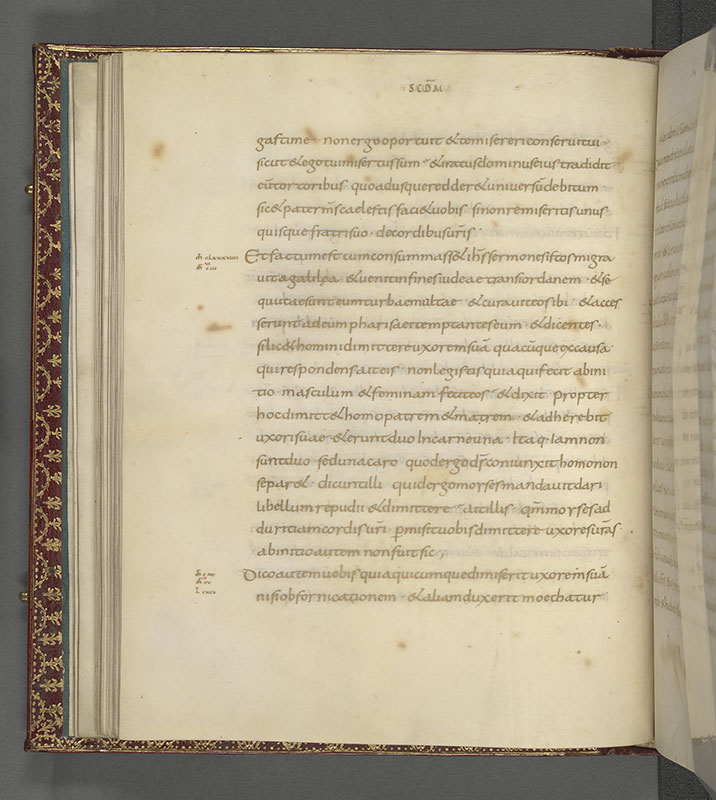 SCDM
gastime · non ergo oportuit & te misereri conservi tui
sicut & ego tui misertus sum · & iratus dominus eius tradidit
eū tortoribus quoadusque redder& universū debitum
sic & pater m̄s caelestis faci& vobis si non remiseritis unus
quisque fratri suo · de cordibus uris
Et factum est cum consummass& ihs sermones istos migra
vit a galilea & venit in fines iudeae trans iordanem · & se
quutae sunt eum turbae multae & curavit eos ibi & acces
serunt ad eum pharisaei temptantes eum & dicentes ·
si lic& homini dimittere uxorem suā quacūque ex causa
qui respondens ait eis non legistis quia qui fecit ab ini
tio masculum & feminam fecit eos & dixit propter
hoc dimitt& homo patrem & matrem & adherebit
uxori suae & erunt duo in carne una · Itaq· iam non
sunt duo sed una caro quod ergo ds coniunxit homo non
separ& · dicunt illi quid ergo moyses mandavit dari
libellum repudii & dimittere ait illis qm̄ moyses ad
duritiam cordis uri permisit vobis dimittere uxores uras
ab initio autem non fuit sic
Dico autem vobis quia quicumque dimiserit uxorem suā
nisi ob fornicationem & aliam duxerit moechatur